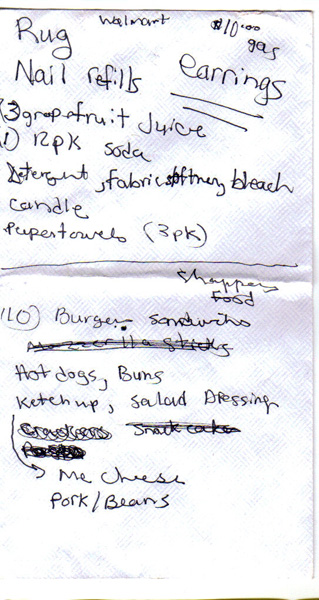 walmart
$10.00
gas
Rug
Nail refills
earrings
(3 grapefruit juice
1) 12pk soda
Detergent, fabric softner, bleach
candle
Papertowels (3pk)
Shoppers
Food
(10) Burger Sandwichs
Mozzerilla Sticks
Hot dogs, Buns
Ketchup, Salad Dressing
Snack cake
Mc Cheese
Pork/Beans